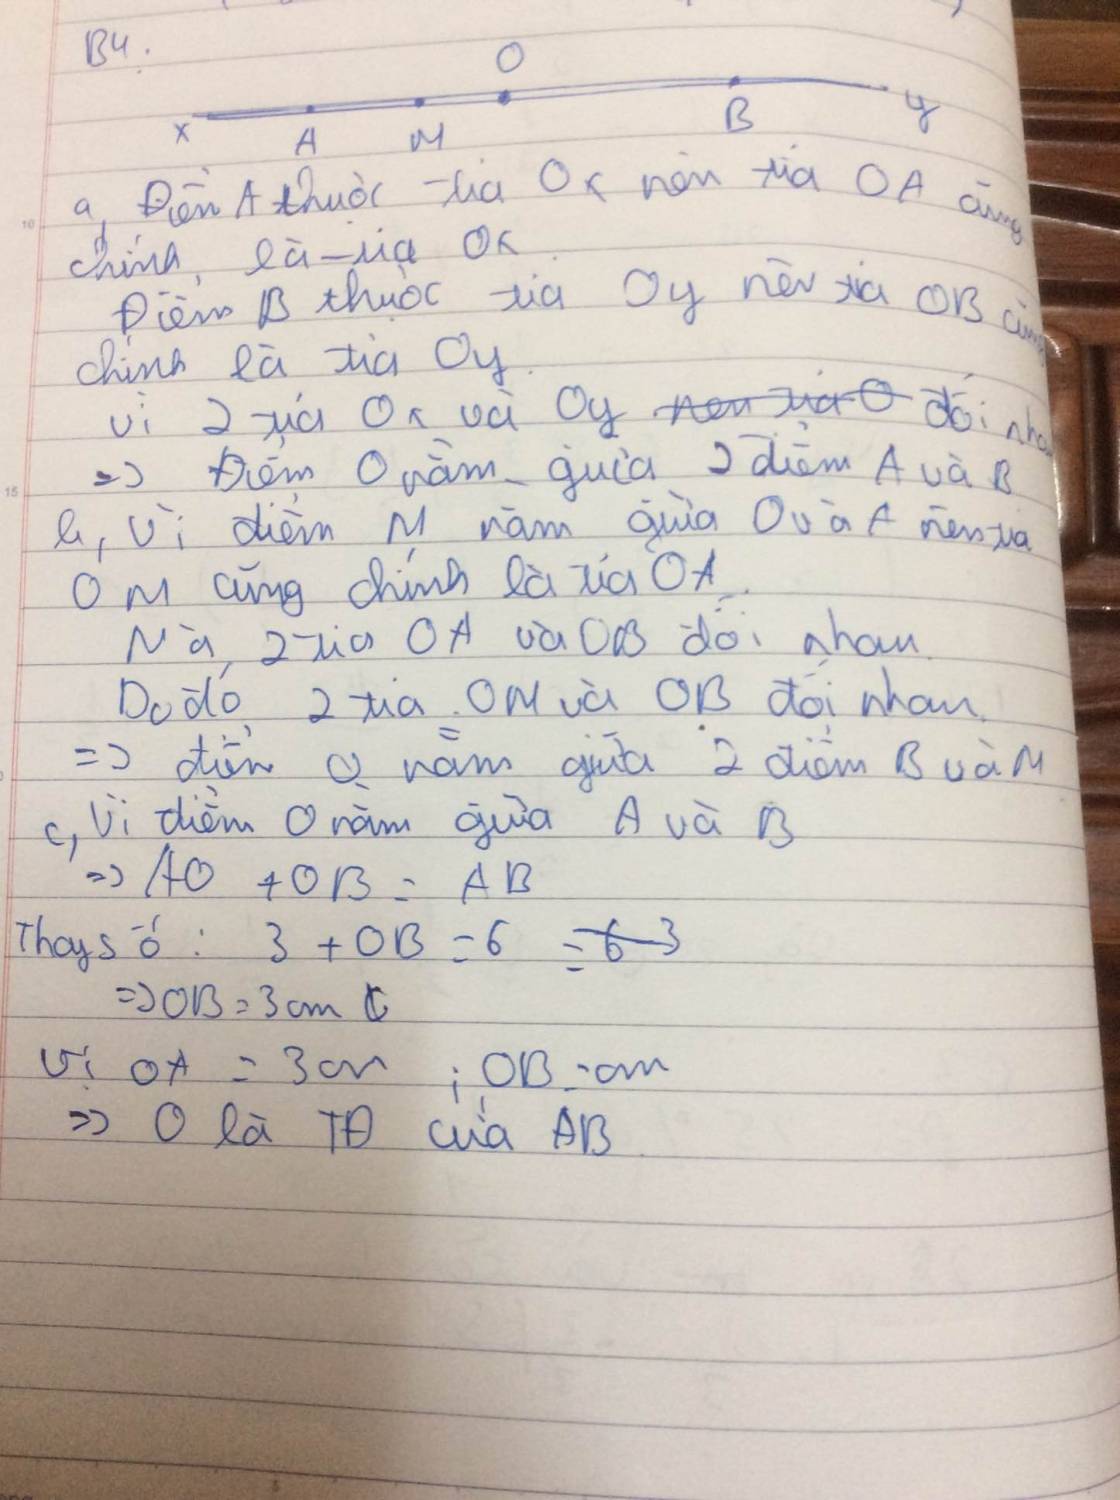 B4.
O
x A M B y
a, Điểm A thuộc tia Ox nên tia OA cũng
chính là tia Ox
Điểm B thuộc tia Oy nên tia OB cũng
chính là tia Oy.
Vì 2 tia Ox và Oy nên tia O đối nhau
=> Điểm O nằm giữa 2 điểm A và B
b, Vì điểm M nằm giữa O và A nên tia
OM cũng chính là tia OA.
Mà 2 tia OA và OB đối nhau.
Do đó 2 tia OM và OB đối nhau.
=> điểm O nằm giữa 2 điểm B và M
c, Vì điểm O nằm giữa A và B
=> AO + OB = AB
Thay số : 3 + OB = 6 = 6 3
=> OB = 3 cm
Vì OA = 3 cm ; OB = cm
=> O là TĐ của AB